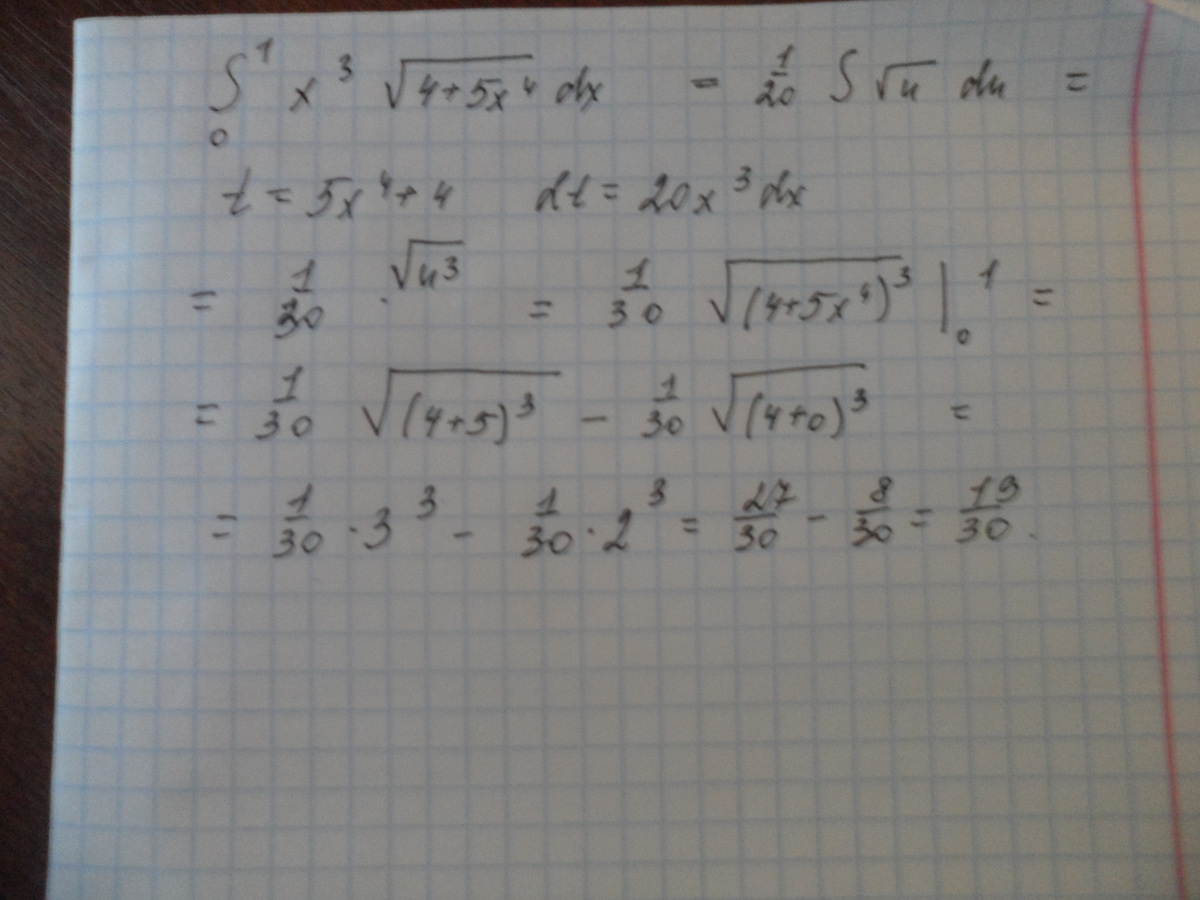 ∫₀¹ x³ √(4+5x⁴) dx = 1/20 ∫ √u du =
t = 5x⁴+4 dt = 20x³dx
= 1/30 · √u³ = 1/30 √(4+5x⁴)³ |₀¹ =
= 1/30 √(4+5)³ − 1/30 √(4+0)³ =
= 1/30 · 3³ − 1/30 · 2³ = 27/30 − 8/30 = 19/30.